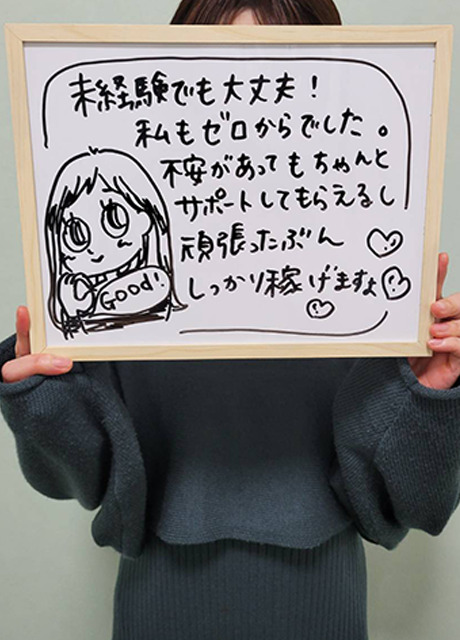 未経験でも大丈夫！
私もゼロからでした。
不安があってもちゃんと
サポートしてもらえるし
頑張ったぶん
しっかり稼げますよ
GOOD!